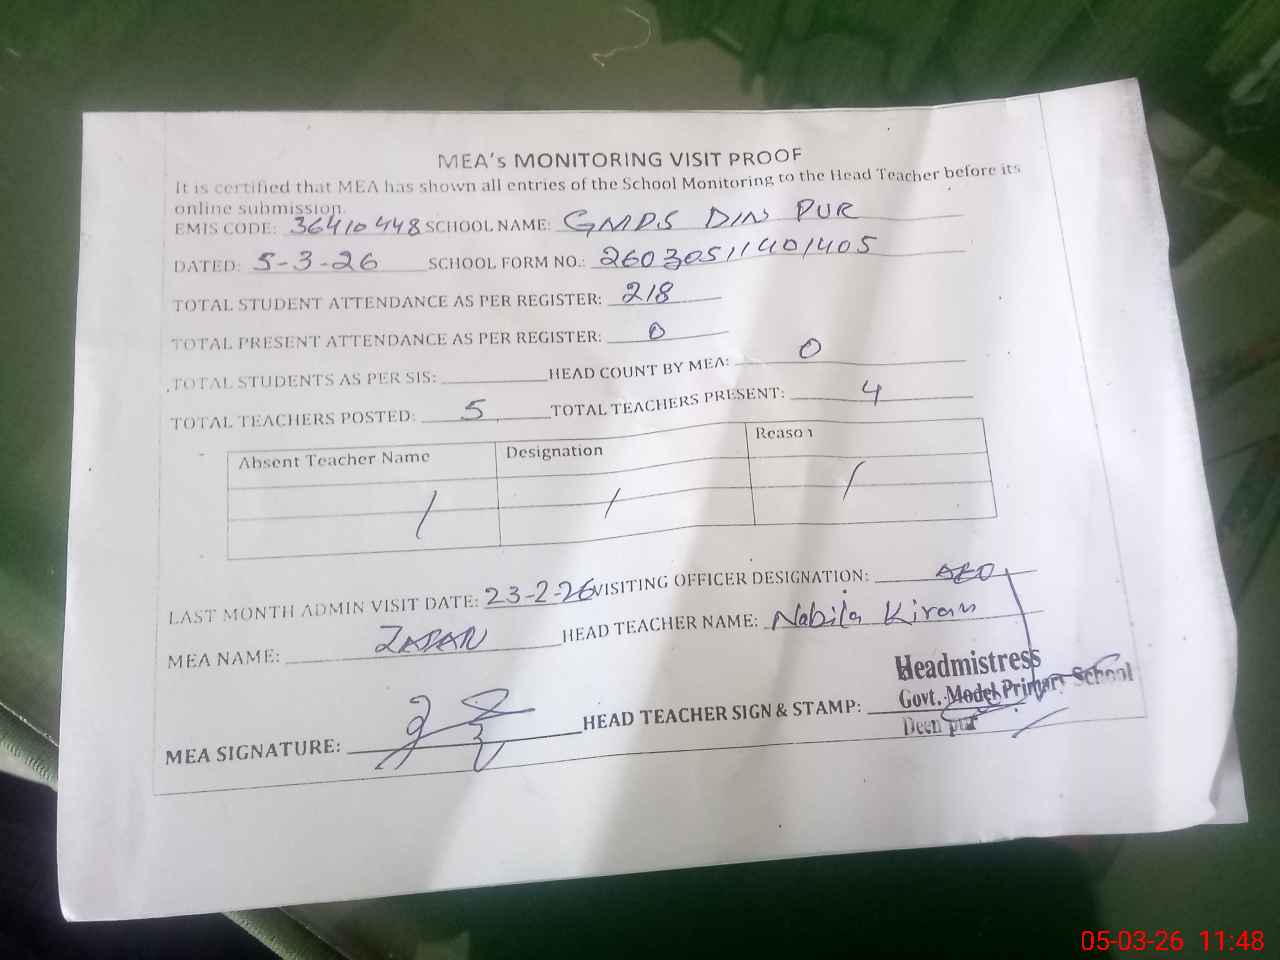 MEA's MONITORING VISIT PROOF
It is certified that MEA has shown all entries of the School Monitoring to the Head Teacher before its
online submission.
EMIS CODE: 36410448 SCHOOL NAME: GMPS DIN PUR
DATED: 5-3-26 SCHOOL FORM NO.: 26030511401405
TOTAL STUDENT ATTENDANCE AS PER REGISTER: 218
TOTAL PRESENT ATTENDANCE AS PER REGISTER: 0
TOTAL STUDENTS AS PER SIS: HEAD COUNT BY MEA: 0
TOTAL TEACHERS POSTED: 5 TOTAL TEACHERS PRESENT: 4
Absent Teacher Name Designation Reason
/ / /
LAST MONTH ADMIN VISIT DATE: 23-2-26 VISITING OFFICER DESIGNATION: AEO
MEA NAME: HEAD TEACHER NAME: Nabila Kiran
Headmistress
Govt. Model Primary School
Deen pur
MEA SIGNATURE: HEAD TEACHER SIGN & STAMP:
05-03-26 11:48